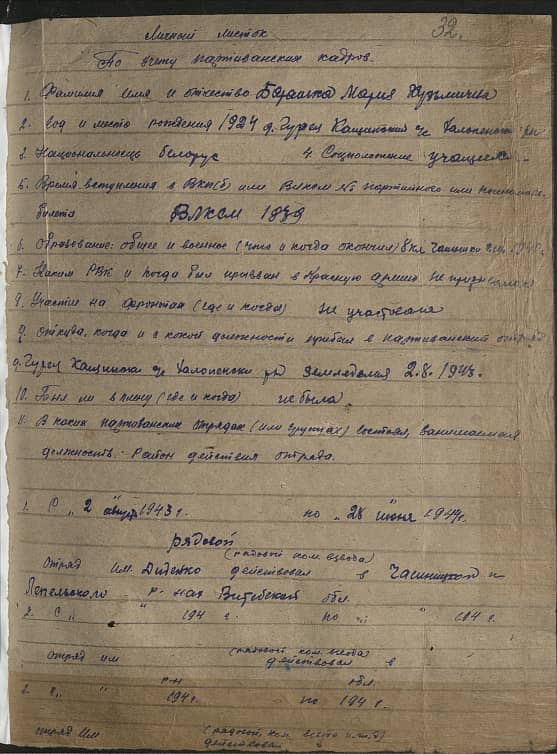 32.
Личный листок
По учету партизанских кадров.
1. Фамилия имя и отчество Мария Кузьминична
2. Год и место рождения 1924 д. Гурец Кащинский с/с Холопенского р-н
3. Национальность белорус 4. Соцположение учащиеся
5. Время вступления в ВКП(б) или ВЛКСМ № партийного или
билета ВЛКСМ 1939
6. Образование: общее и военное (что и когда окончил) 8 кл
7. Каким РВК и когда был призван в Красную армию не
8. Участие на фронтах (где и когда) не участвовала
9. Откуда, когда и с какой должности прибыл в партизанский отряд
д. Гурец Кащинска с/с Холопенски р-н земледелия 2.8.1943.
10. Был ли в плену (где и когда) не была.
11. В каких партизанских отрядах (или группах) состоял, занимаемая
должность. Район действия отряда.
1. С „2" август 1943 г. по „28" июня 1944 г.
рядовой
(рядовой ком. взвода)
Отряд им. Диденко действовал в Чашницкого и
Лепельского р-нах Витебской обл.
2. С „ " 194 г. по „ " 194 г.
(рядовой ком. взвода)
отряд им действовал в
р-н обл.
3. С „ " 194 г. по 194 г.
(рядовой, ком. взвода и т.д)
отряд им действовал в